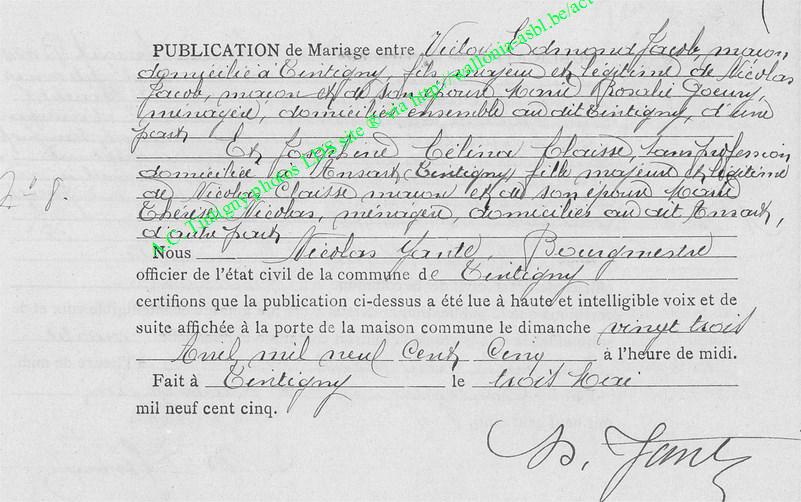 PUBLICATION de Mariage entre Victor Edmond Jacob, maçon
domicilié à Tintigny, fils majeur et légitime de Nicolas
Jacob, maçon et de son épouse Marie Rosalie Goeury,
ménagère, domiciliés ensemble au dit Tintigny, d'une
part
Et Joséphine Célina Claisse, sans profession
domiciliée à Ansart, Tintigny fille majeure et légitime
N° 8.
de Nicolas Claisse maçon et de son épouse Marie
Thérèse Nicolas, ménagère, domiciliés au dit Ansart,
d'autre part
Nous Nicolas Yante, Bourgmestre
officier de l'état civil de la commune de Tintigny
certifions que la publication ci-dessus a été lue à haute et intelligible voix et de
suite affichée à la porte de la maison commune le dimanche vingt trois
Avril mil neuf Cent Cinq à l'heure de midi.
Fait à Tintigny le trois Mai
mil neuf cent cinq.
N. Yante
A.C. Tintigny photos LDS site ® via http://wallonia-asbl.be/act